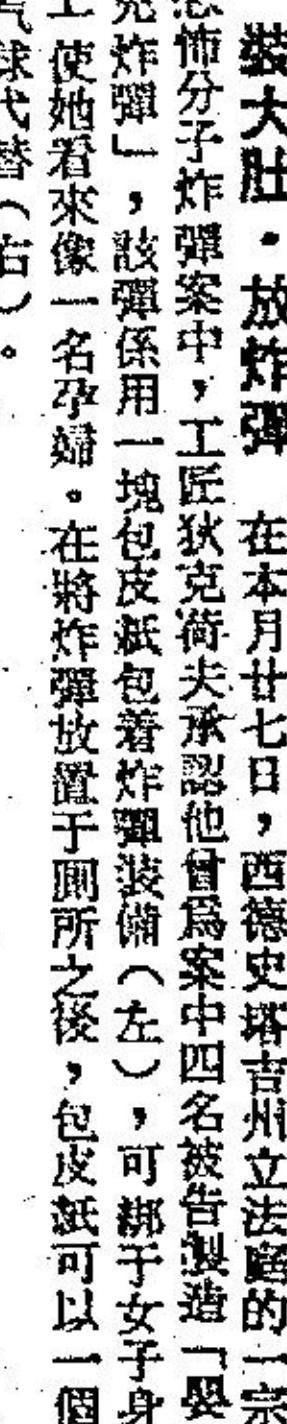 裝大肚·放炸彈　在本月廿七日，西德史塔吉州立法庭的一宗
恐怖分子炸彈案中，工匠狄克荷夫承認他曾爲案中四名被告製造「嬰
兒炸彈」，該彈係用一塊包皮紙包着炸彈裝備（左），可綁于女子身
上，使她看來像一名孕婦。在將炸彈放置于厠所之後，包皮紙可以一個
气球代替（右）。